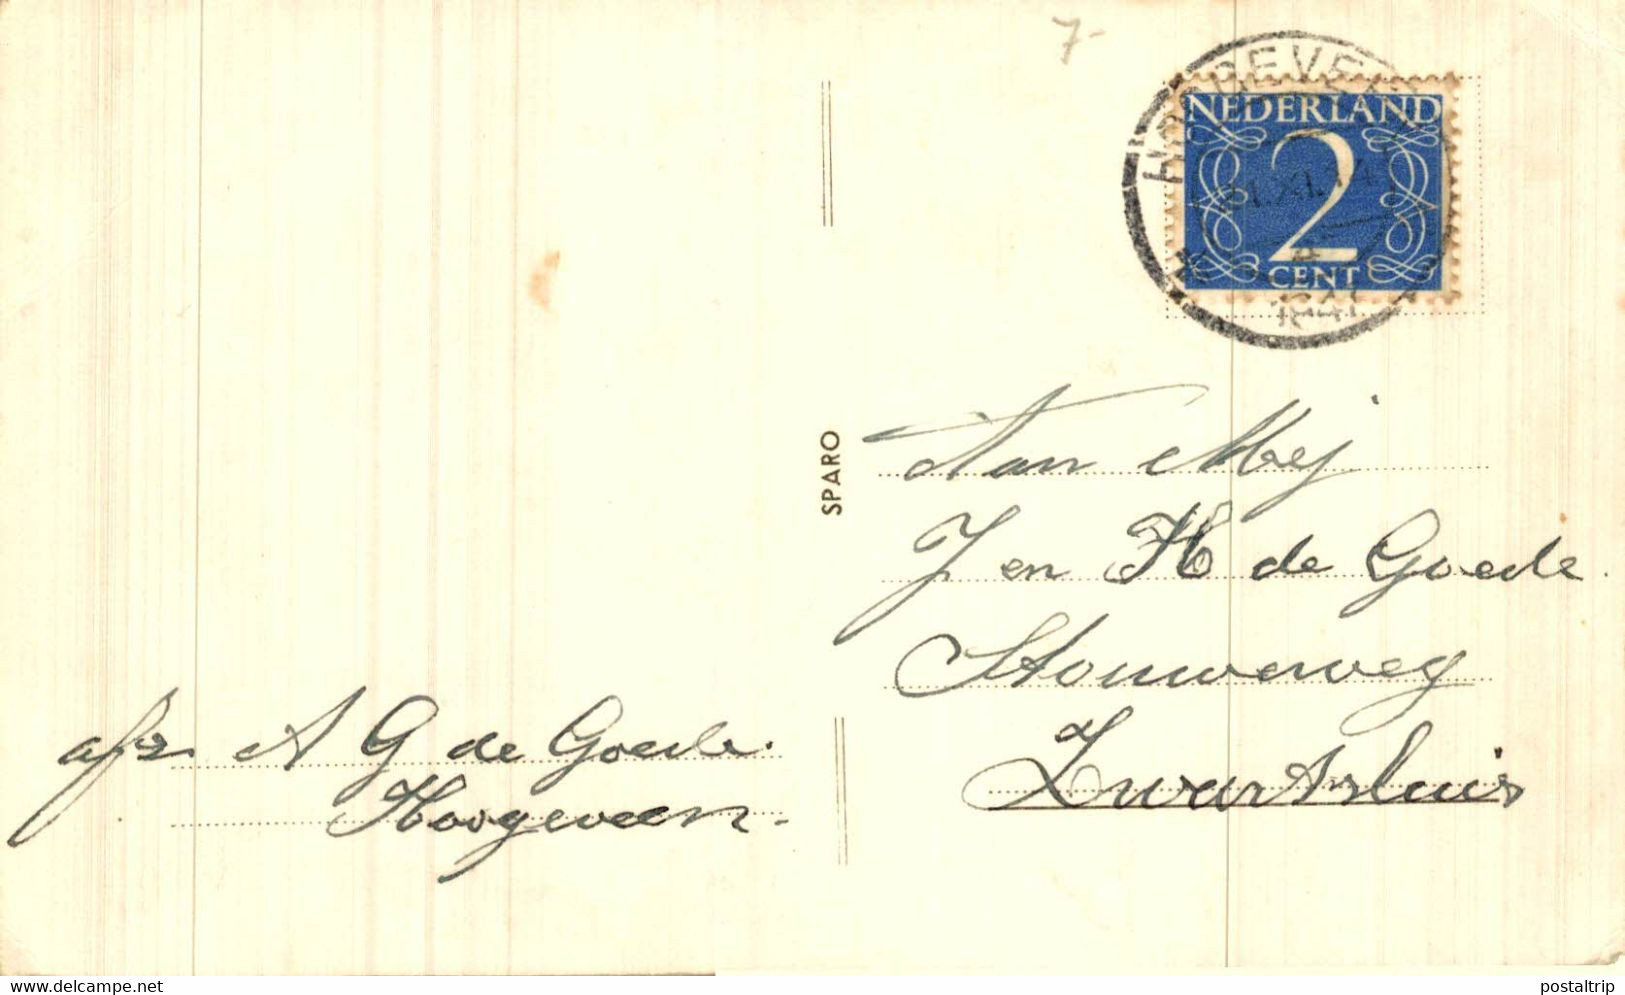 7-
HOOGEVEEN
NEDERLAND
2
CENT
SPARO
Aan Mej
J en H de Goede.
Stouweweg
Zwartsluis
afz. A G de Goede.
Hoogeveen-
www.delcampe.net
postaltrip